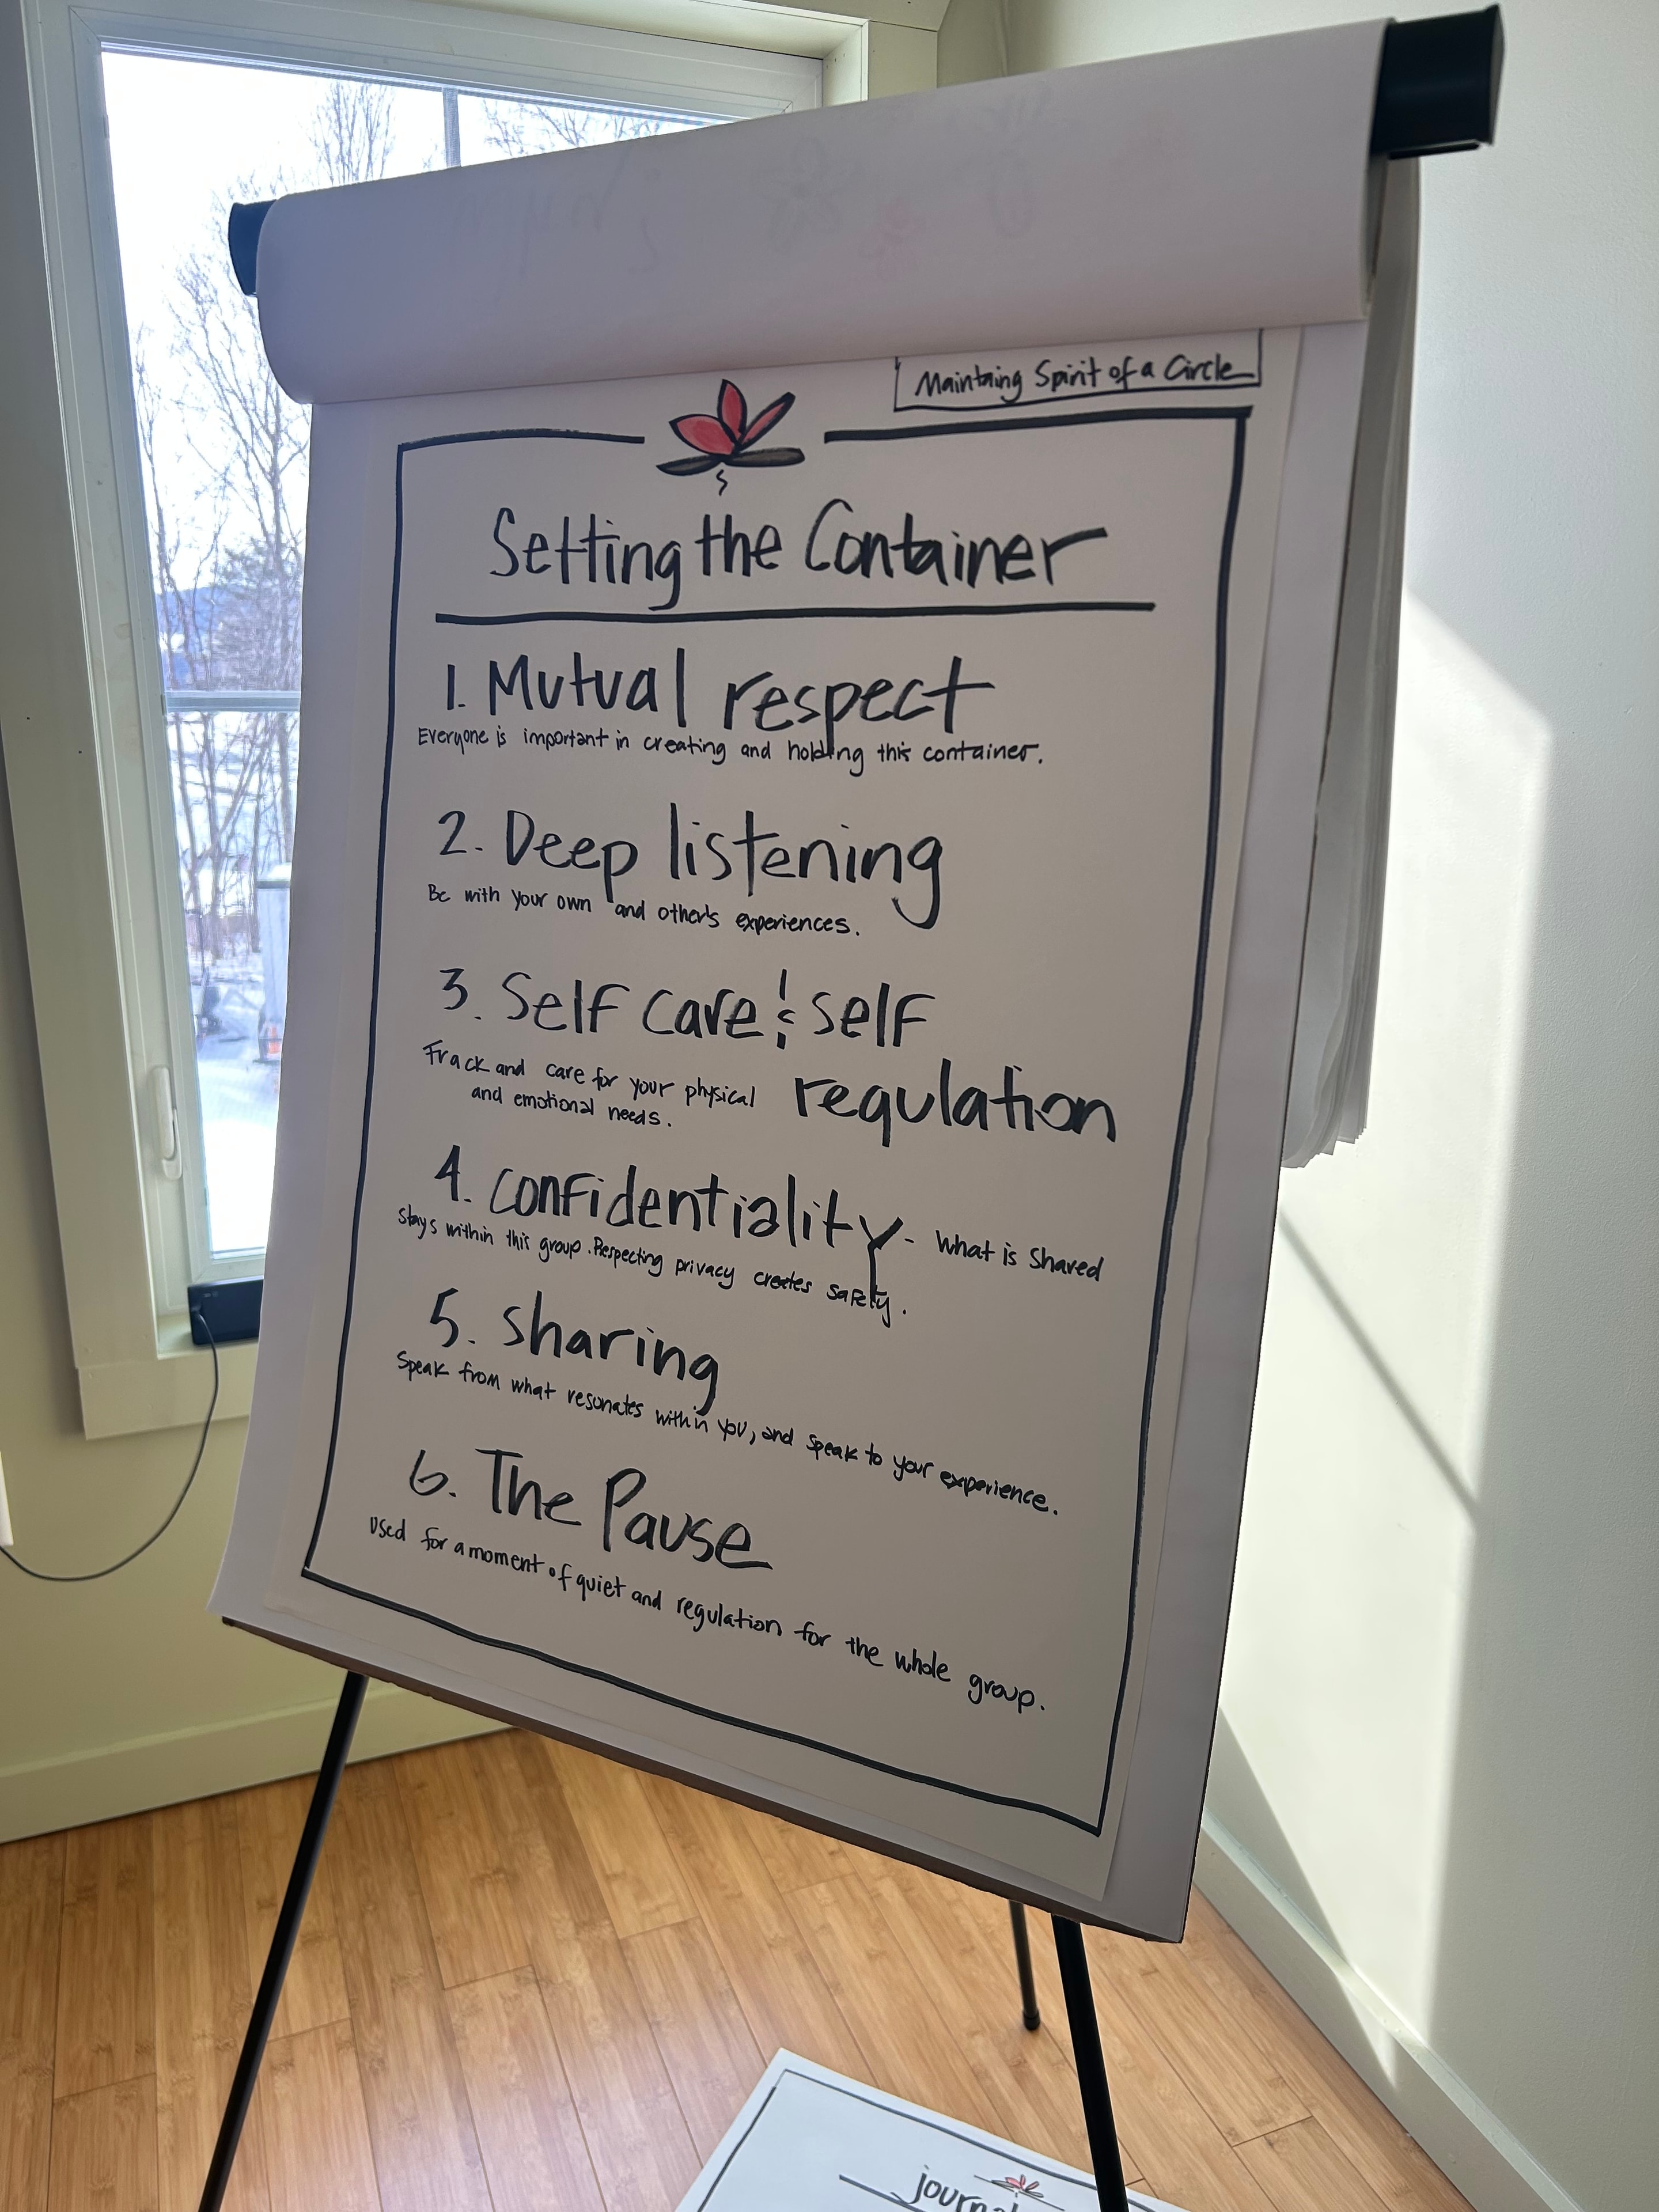 Maintaing Spirit of a Circle
Setting the Container
1. Mutual respect
Everyone is important in creating and holding this container.
2. Deep listening
Be with your own and other's experiences.
3. Self care & self
regulation
Track and care for your physical
and emotional needs.
4. Confidentiality - What is Shared
stays within this group. Respecting privacy creates safety.
5. Sharing
Speak from what resonates within you, and speak to your experience.
6. The Pause
Used for a moment of quiet and regulation for the whole group.